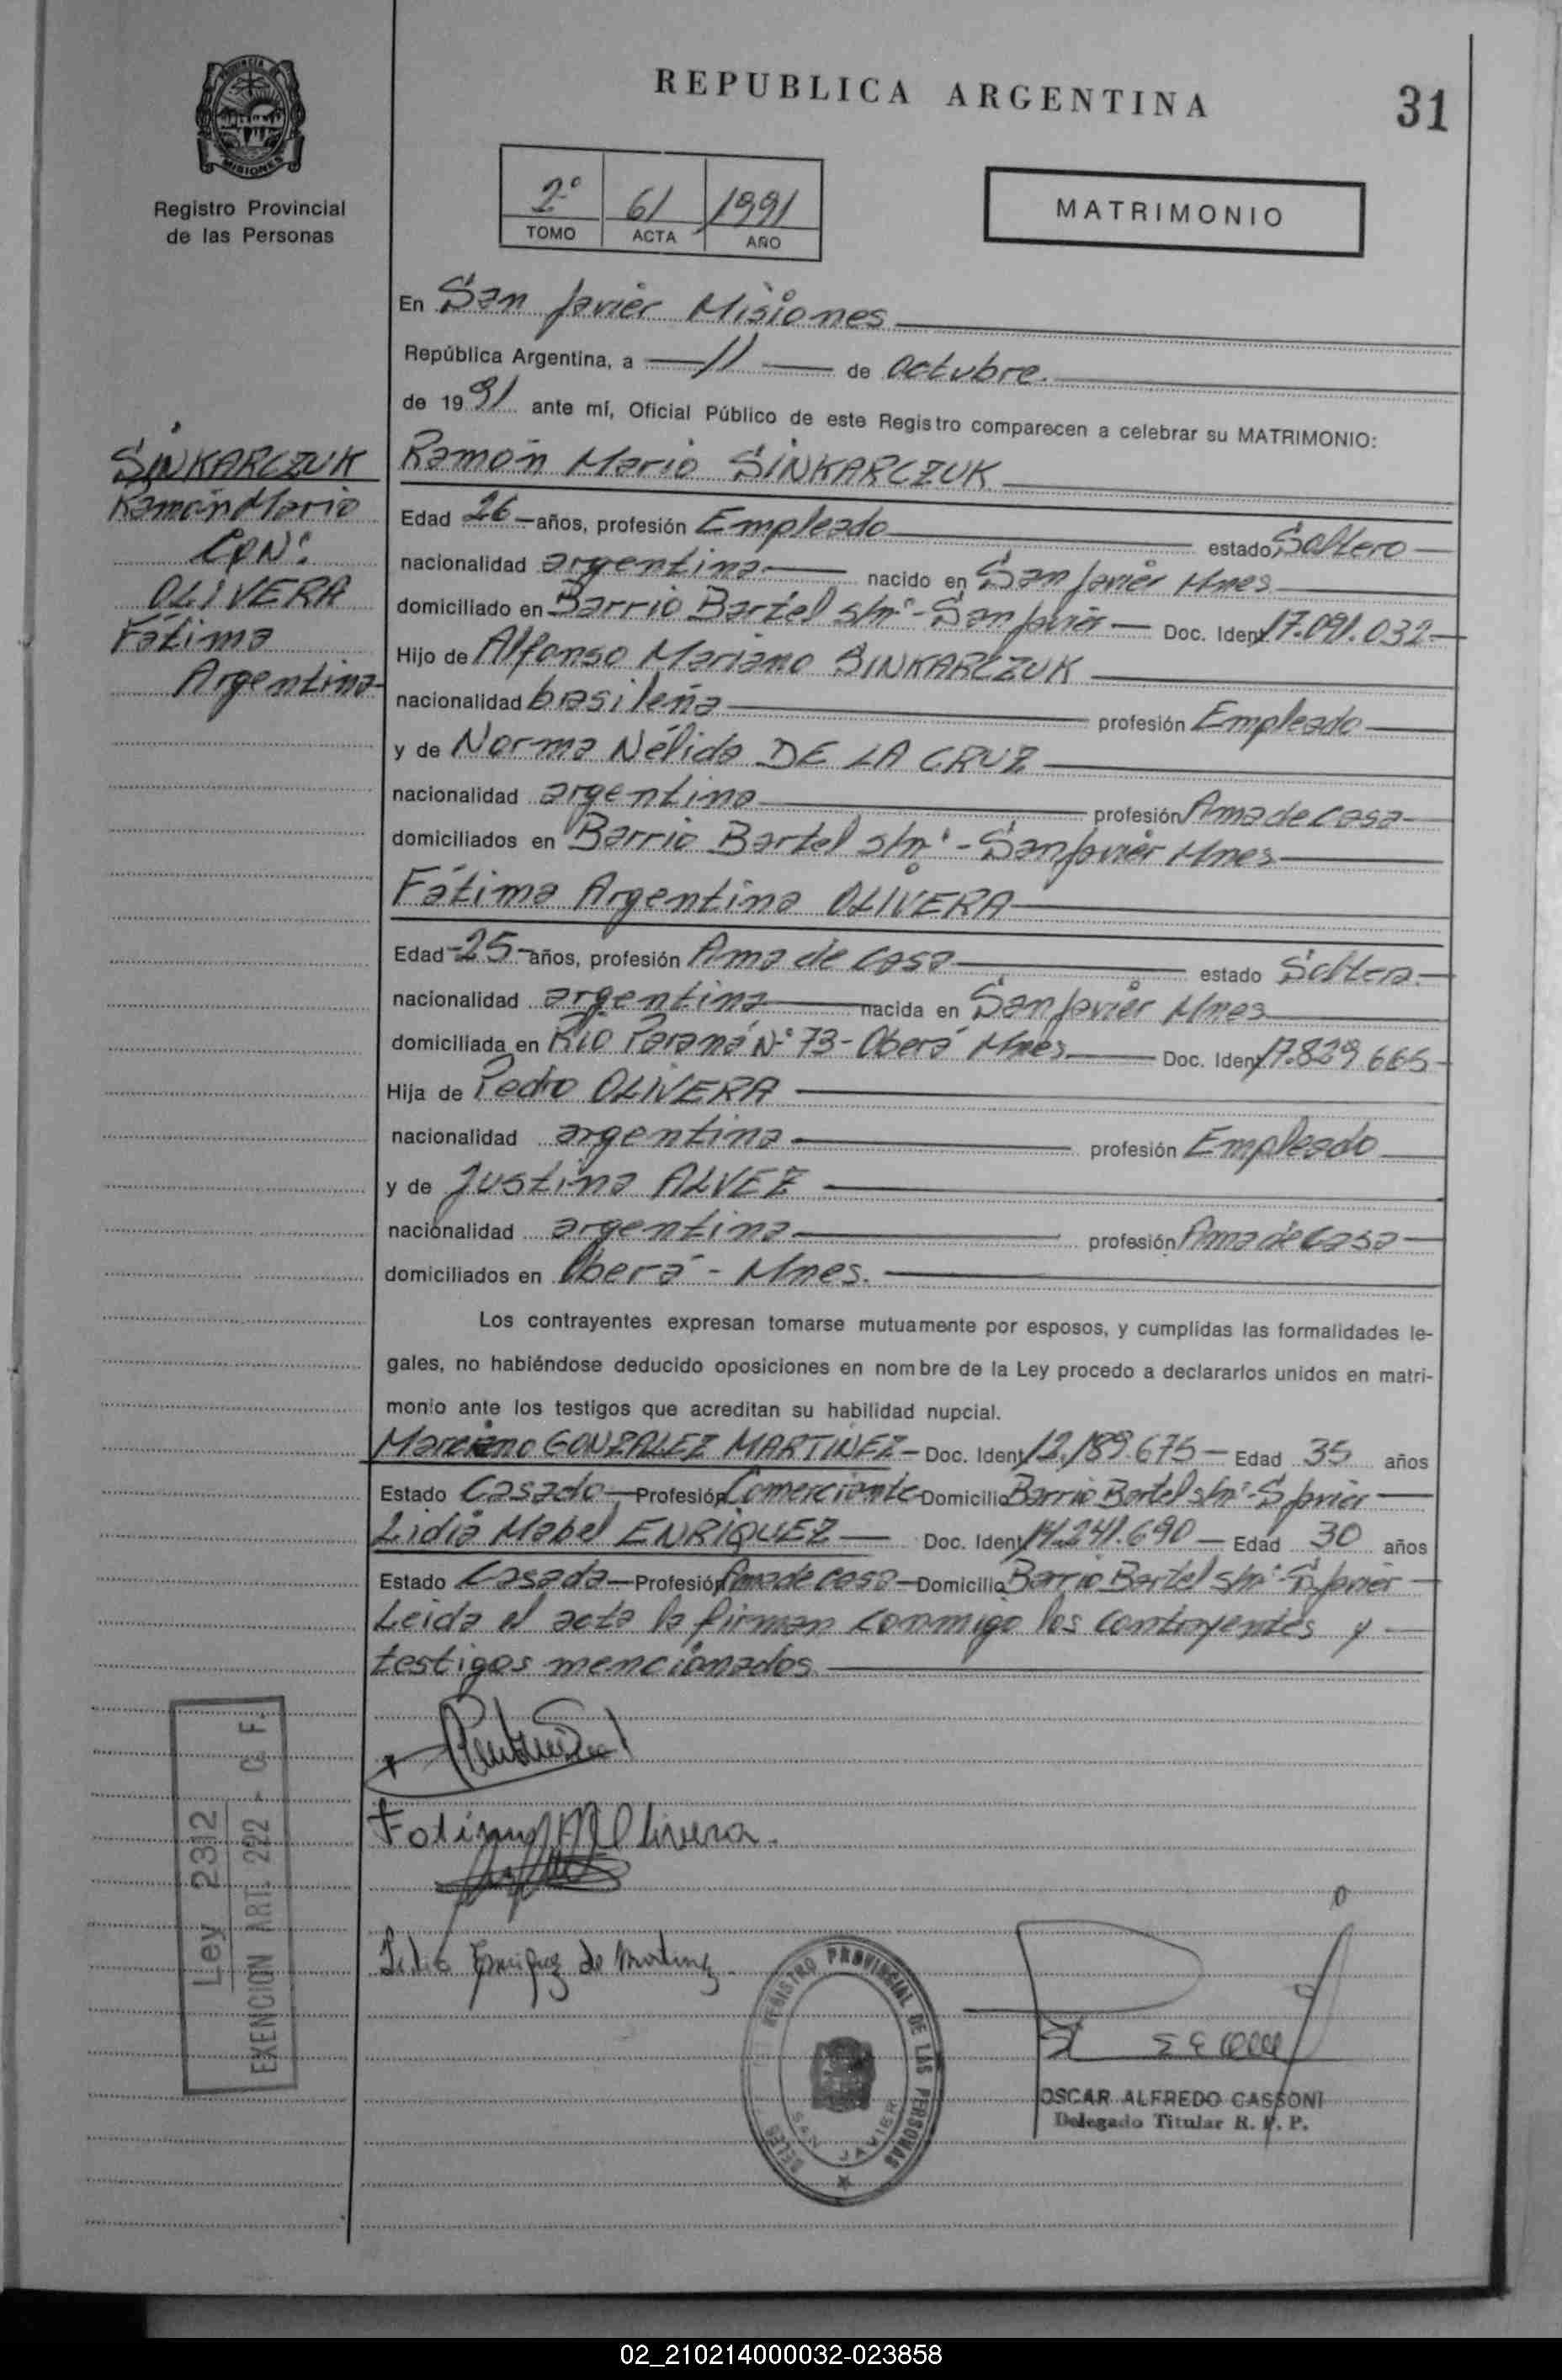 REPUBLICA ARGENTINA
31
PROVINCIA
MISIONES
Registro Provincial
de las Personas
2º 61 1991
TOMO ACTA AÑO
MATRIMONIO
En San Javier Misiones
República Argentina, a 11 de octubre.
de 1991 ante mí, Oficial Público de este Registro comparecen a celebrar su MATRIMONIO:
SINKARCZUK
Ramón Mario
CON:
OLIVERA
Fátima
Argentina
Ramón Mario SINKARCZUK
Edad 26 años, profesión Empleado estado Soltero
nacionalidad argentina nacido en San Javier Mnes
domiciliado en Barrio Bartel s/nº - San Javier Doc. Ident 17.091.032
Hijo de Alfonso Mariano SINKARCZUK
nacionalidad brasileña profesión Empleado
y de Norma Nélida DE LA CRUZ
nacionalidad argentina profesión Ama de casa
domiciliados en Barrio Bartel s/nº - San Javier Mnes
Fátima Argentina OLIVERA
Edad -25- años, profesión Ama de casa estado Soltera
nacionalidad argentina nacida en San Javier Mnes
domiciliada en Río Paraná Nº 73 - Oberá Mnes Doc. Ident 17.829.665
Hija de Pedro OLIVERA
nacionalidad argentina profesión Empleado
y de Justina ALVEZ
nacionalidad argentina profesión Ama de casa
domiciliados en Oberá - Mnes.
Los contrayentes expresan tomarse mutuamente por esposos, y cumplidas las formalidades le-
gales, no habiéndose deducido oposiciones en nombre de la Ley procedo a declararlos unidos en matri-
monio ante los testigos que acreditan su habilidad nupcial.
Marciano GONZALEZ MARTINEZ - Doc. Ident 12.189.675 - Edad 35 años
Estado Casado - Profesión Comerciante Domicilio Barrio Bartel s/nº - S Javier
Lidia Mabel ENRIQUEZ Doc. Ident 14.241.690 - Edad 30 años
Estado Casada - Profesión Ama de casa - Domicilio Barrio Bartel s/nº - S Javier
Leida el acta la firman conmigo los contrayentes y
testigos mencionados
Fatima A Olivera
Lidia Enriquez de Martinez
Ley 2312
EXENCION ART. 292 - C. F.
REGISTRO PROVINCIAL DE LAS PERSONAS
SAN JAVIER
OSCAR ALFREDO CASSONI
Delegado Titular R. P. P.
02_210214000032-023858